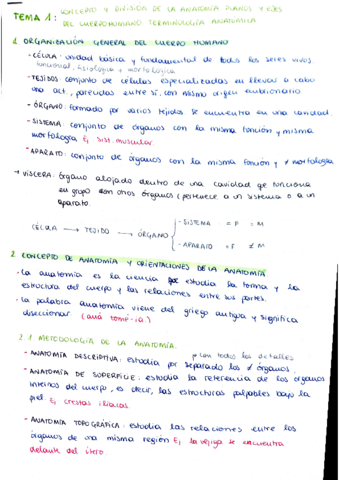 TEMA 1: CONCEPTO Y DIVISIÓN DE LA ANATOMÍA PLANOS Y EJES
DEL CUERPO HUMANO TERMINOLOGÍA ANATÓMICA
1. ORGANIZACIÓN GENERAL DEL CUERPO HUMANO
- CÉLULA: unidad básica y fundamental de todos los seres vivos
funcional, fisiológica y morfológica
- TEJIDOS conjunto de células especializadas en llevar a cabo
una act., parecidas entre sí, con mismo origen embrionario
- ÓRGANO: formado por varios tejidos se encuentra en una cavidad
- SISTEMA: conjunto de órganos con la misma función y misma
morfología Ej sist. muscular
- APARATO: conjunto de órganos con la misma función y ≠ morfología
→ VÍSCERA: órgano alojado dentro de una cavidad que funciona
en grupo con otros órganos (pertenece a un sistema o a un
aparato.
CÉLULA → TEJIDO → ÓRGANO
- SISTEMA = F = M
- APARATO = F ≠ M
2. CONCEPTO DE ANATOMÍA Y ORIENTACIONES DE LA ANATOMÍA
· La anatomía es la ciencia que estudia la forma y la
estructura del cuerpo y las relaciones entre sus partes.
· La palabra anatomía viene del griego antiguo y significa
diseccionar (aná tomé-ia.)
2.1 METODOLOGÍA DE LA ANATOMÍA.
con todos los detalles
- ANATOMÍA DESCRIPTIVA: estudia por separado los ≠ órganos.
- ANATOMÍA DE SUPERFICIE: estudia la referencia de los órganos
internos del cuerpo, es decir, las estructuras palpables bajo la
piel. Ej crestas ilíacas
- ANATOMÍA TOPOGRÁFICA: estudia las relaciones entre los
órganos de una misma región Ej la vejiga se encuentra
delante del útero